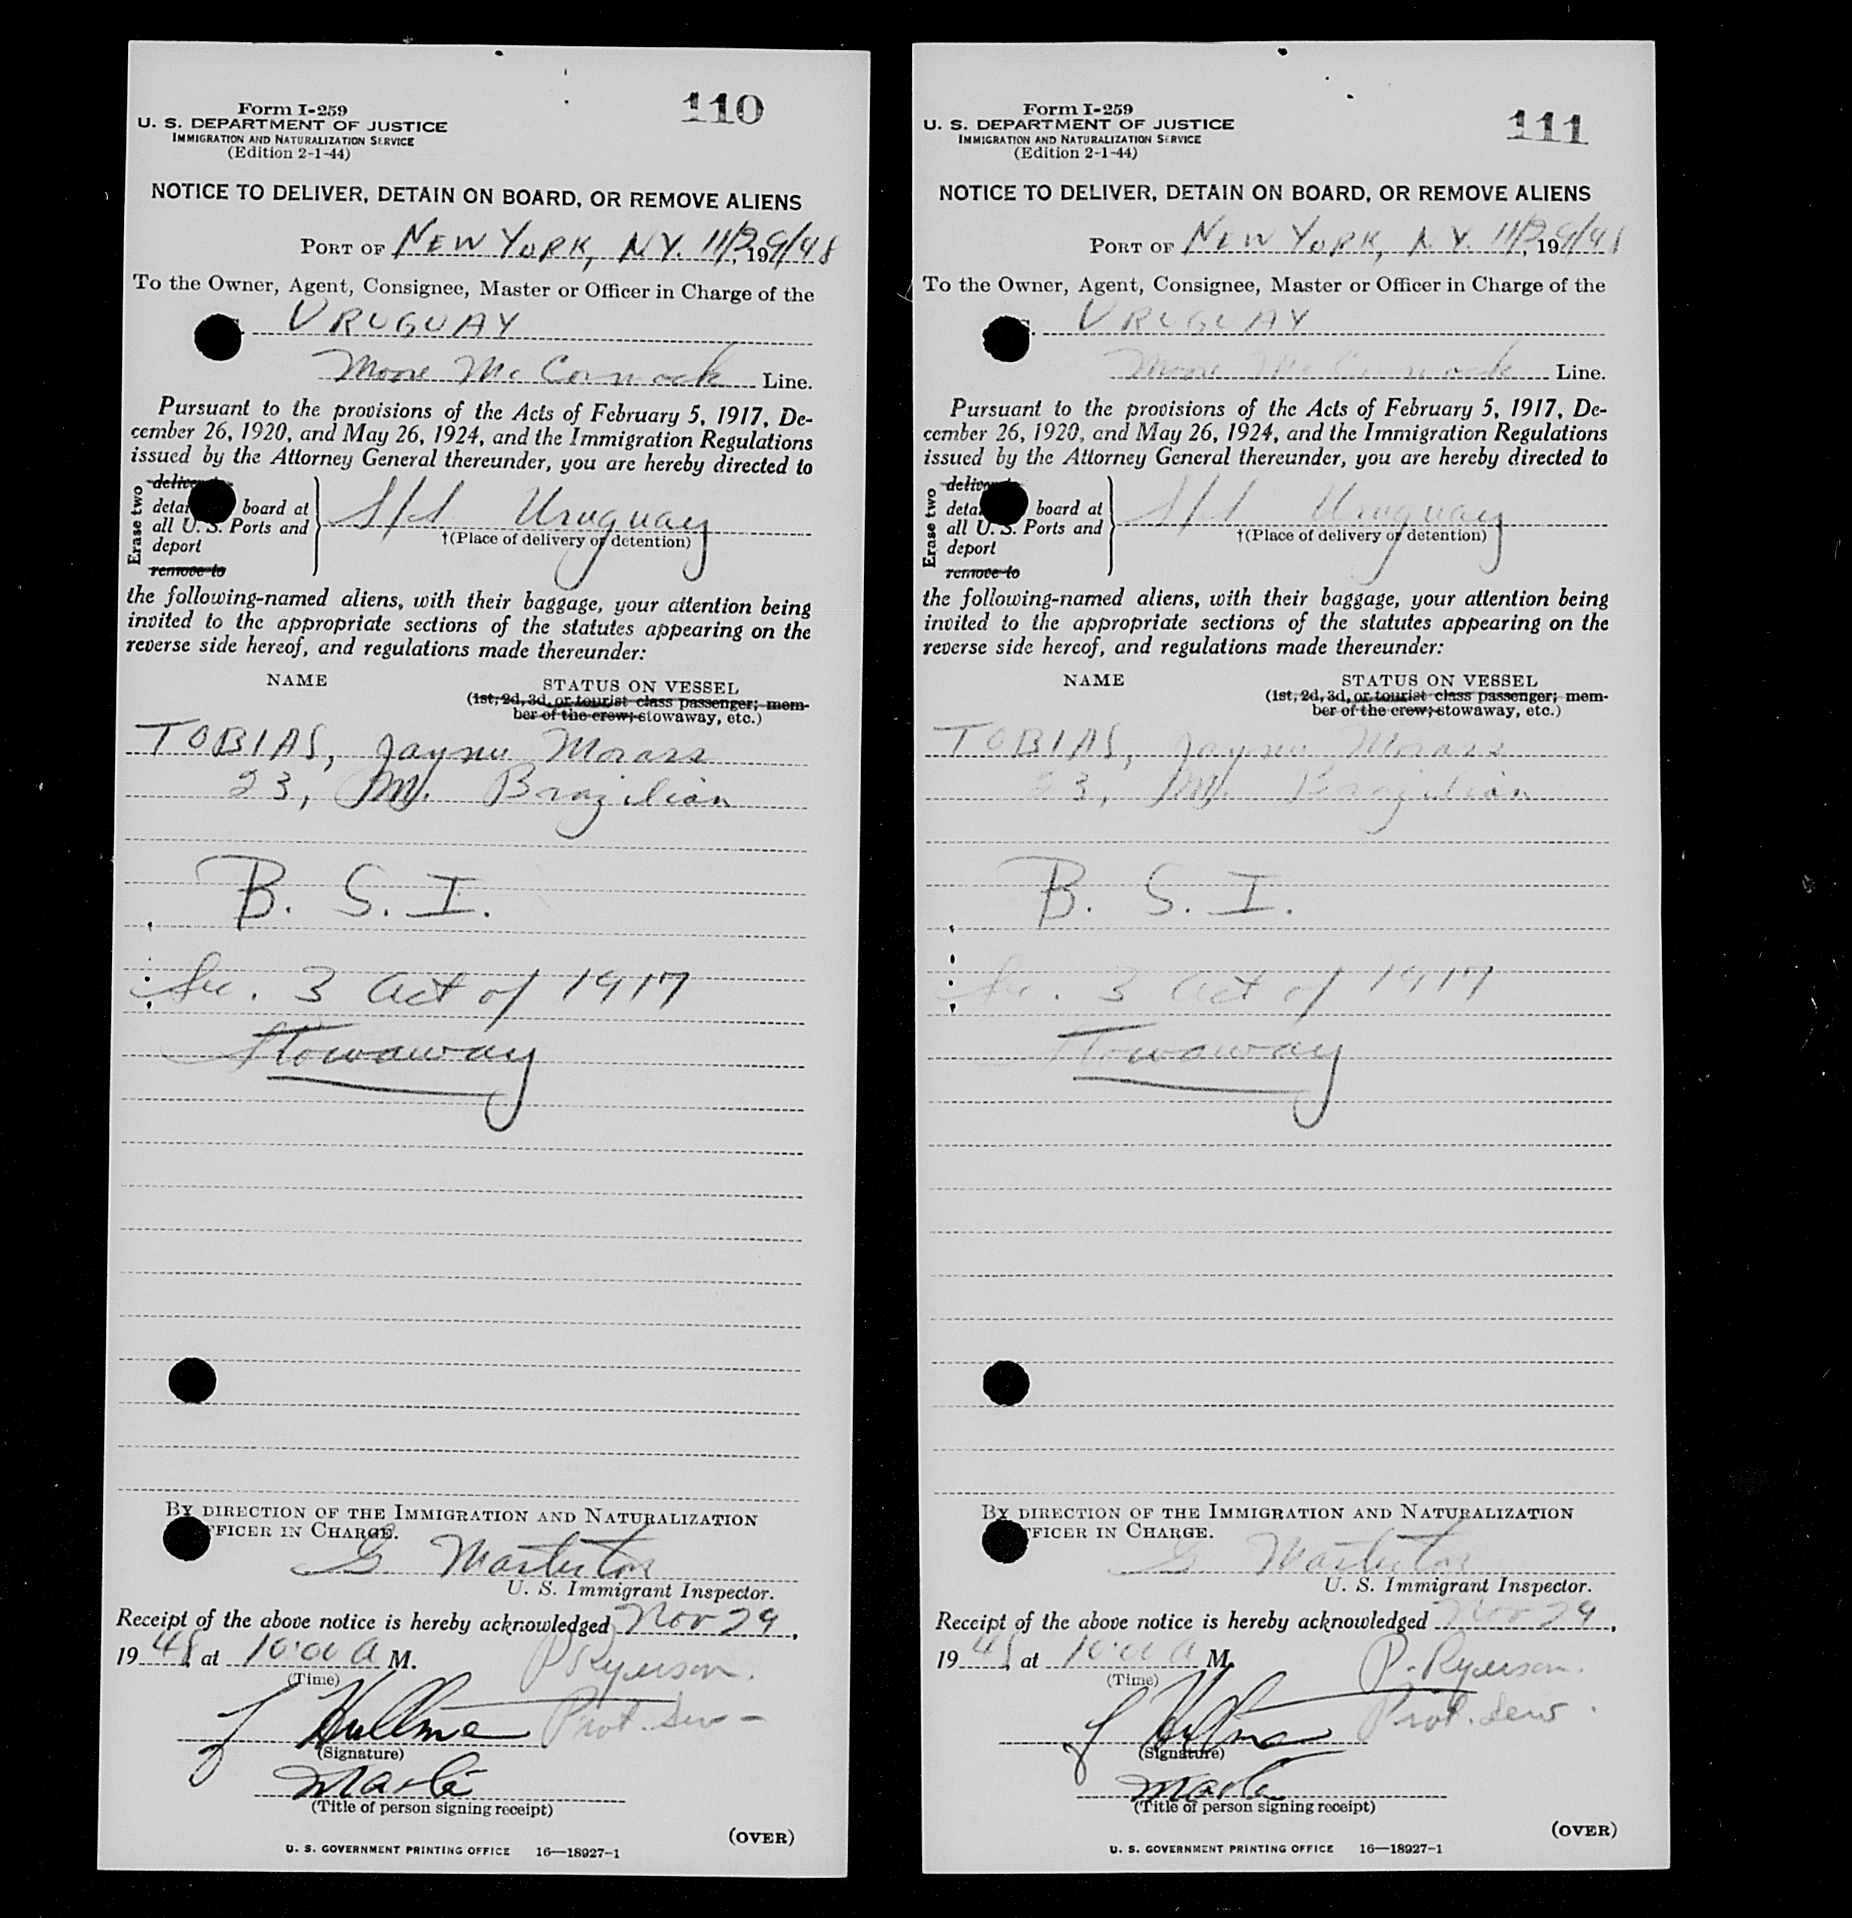 110
Form I-259
U. S. DEPARTMENT OF JUSTICE
IMMIGRATION AND NATURALIZATION SERVICE
(Edition 2-1-44)
NOTICE TO DELIVER, DETAIN ON BOARD, OR REMOVE ALIENS
PORT OF NEW YORK, N.Y. 11/29/48, 19
To the Owner, Agent, Consignee, Master or Officer in Charge of the
URUGUAY
Moore McCormack Line.
Pursuant to the provisions of the Acts of February 5, 1917, De-
cember 26, 1920, and May 26, 1924, and the Immigration Regulations
issued by the Attorney General thereunder, you are hereby directed to
Erase two
deliver
detain board at
all U. S. Ports and
deport
remove to
S/S Uruguay
†(Place of delivery or detention)
the following-named aliens, with their baggage, your attention being
invited to the appropriate sections of the statutes appearing on the
reverse side hereof, and regulations made thereunder:
NAME STATUS ON VESSEL
(1st, 2d, 3d, or tourist class passenger; mem-
ber of the crew; stowaway, etc.)
TOBIAS, Jayme Morass
23, M. Brazilian
B. S. I.
Sec. 3 Act of 1917
Stowaway
BY DIRECTION OF THE IMMIGRATION AND NATURALIZATION
OFFICER IN CHARGE.
G. Masterton
U. S. Immigrant Inspector.
Receipt of the above notice is hereby acknowledged Nov 29,
1948, at 10:00 A M.
(Time)
P Ryerson.
Prot. Serv
(Signature)
Master
(Title of person signing receipt)
(OVER)
U. S. GOVERNMENT PRINTING OFFICE 16—18927-1
111
Form I-259
U. S. DEPARTMENT OF JUSTICE
IMMIGRATION AND NATURALIZATION SERVICE
(Edition 2-1-44)
NOTICE TO DELIVER, DETAIN ON BOARD, OR REMOVE ALIENS
PORT OF NEW YORK, N.Y. 11/29/48, 19
To the Owner, Agent, Consignee, Master or Officer in Charge of the
URUGUAY
Moore McCormack Line.
Pursuant to the provisions of the Acts of February 5, 1917, De-
cember 26, 1920, and May 26, 1924, and the Immigration Regulations
issued by the Attorney General thereunder, you are hereby directed to
Erase two
deliver
detain board at
all U. S. Ports and
deport
remove to
S/S Uruguay
†(Place of delivery or detention)
the following-named aliens, with their baggage, your attention being
invited to the appropriate sections of the statutes appearing on the
reverse side hereof, and regulations made thereunder:
NAME STATUS ON VESSEL
(1st, 2d, 3d, or tourist class passenger; mem-
ber of the crew; stowaway, etc.)
TOBIAS, Jayme Morass
23, M. Brazilian
B. S. I.
Sec. 3 Act of 1917
Stowaway
BY DIRECTION OF THE IMMIGRATION AND NATURALIZATION
OFFICER IN CHARGE.
G. Masterton
U. S. Immigrant Inspector.
Receipt of the above notice is hereby acknowledged Nov 29,
1948, at 10:00 A M.
(Time)
P. Ryerson.
Prot. Serv.
(Signature)
Master
(Title of person signing receipt)
(OVER)
U. S. GOVERNMENT PRINTING OFFICE 16—18927-1